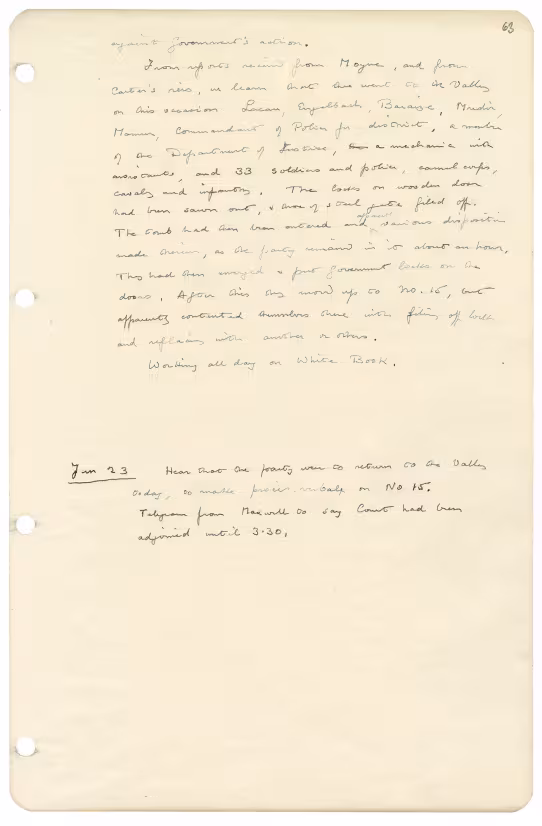 63
against Government's action.
From reports received from Moyne, and from
Carter's reis, we learn that there went to the Valley
on this occasion Lacau, Engelbach, Baraize, Mudir,
Mamur, Commandant of Police for district, a member
of the Department of Justice, a mechanic with
assistants, and 33 soldiers and police, camel corps,
cavalry and infantry. The locks on wooden door
had been sawn out, & those of steel gate filed off.
The tomb had then been entered and apparently various dispositions
made therein, as the party remained in it about an hour.
They had then emerged & put government locks on the
doors. After this they moved up to No. 15, but
apparently contented themselves there with filing off locks
and replacing with another or others.
Working all day on White Book.
Jan 23 Hear that the party were to return to the Valley
today, to make procès-verbale on No 15.
Telegram from Maxwell to say Court had been
adjourned until 3.30.